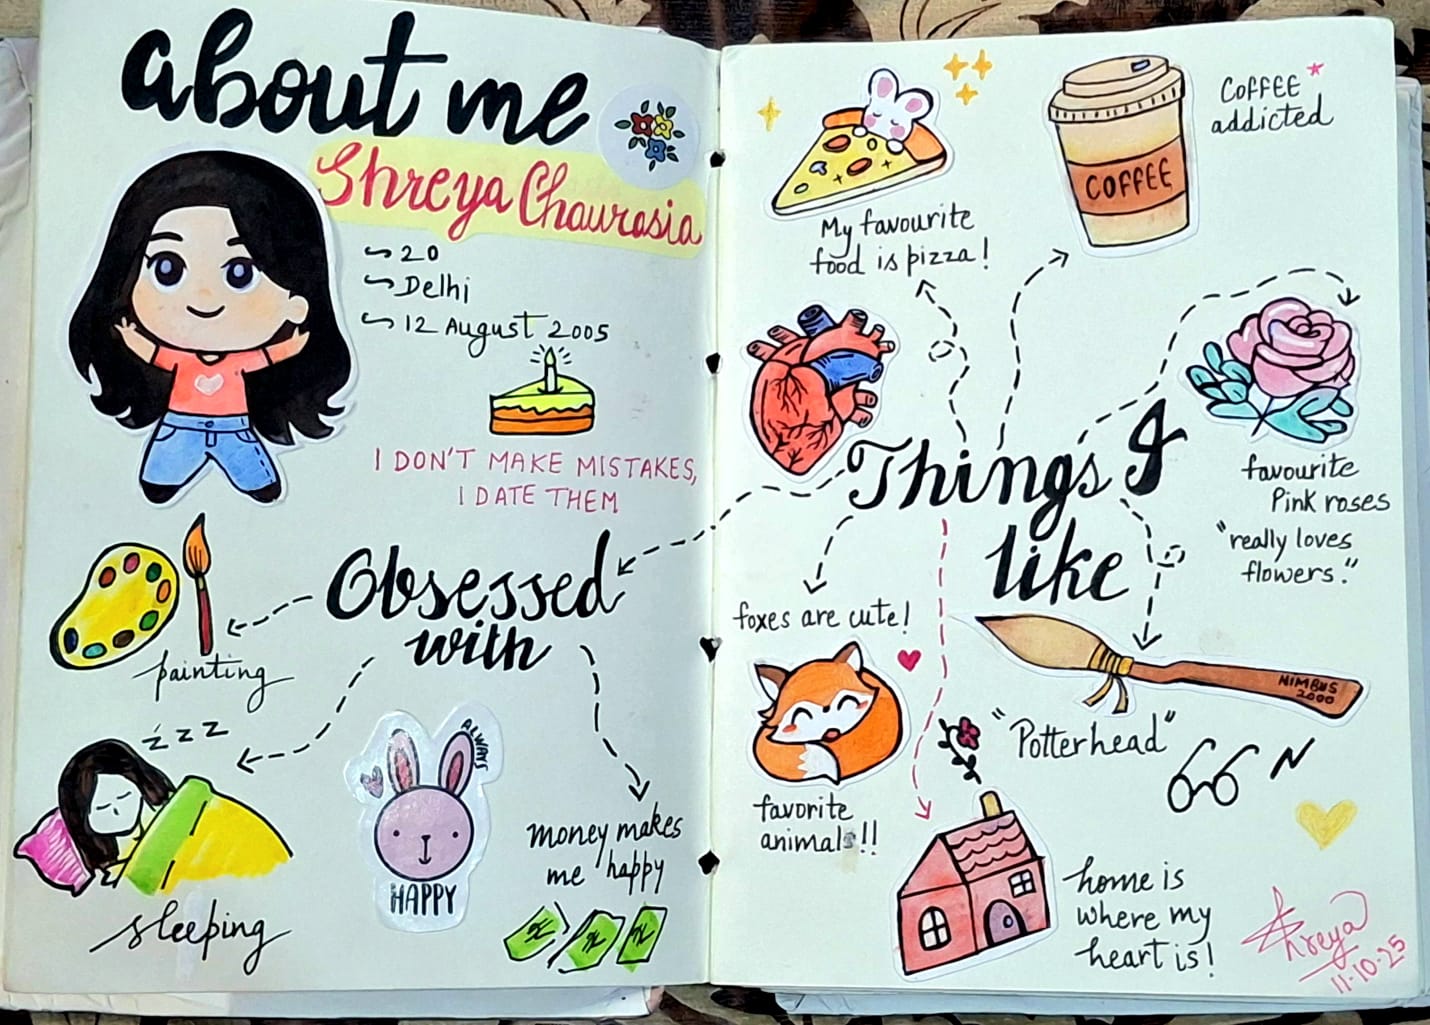 about me
Shreya Chaurasia
20
Delhi
12 August 2005
I DON'T MAKE MISTAKES,
I DATE THEM
Obsessed
with
painting
z z z
sleeping
ALWAYS
HAPPY
money makes
me happy
My favourite
food is pizza!
COFFEE
COFFEE
addicted
Things I
like
favourite
Pink roses
"really loves
flowers."
foxes are cute!
favorite
animals!!
NIMBUS
2000
"Potterhead"
home is
where my
heart is!
Shreya
11.10.25